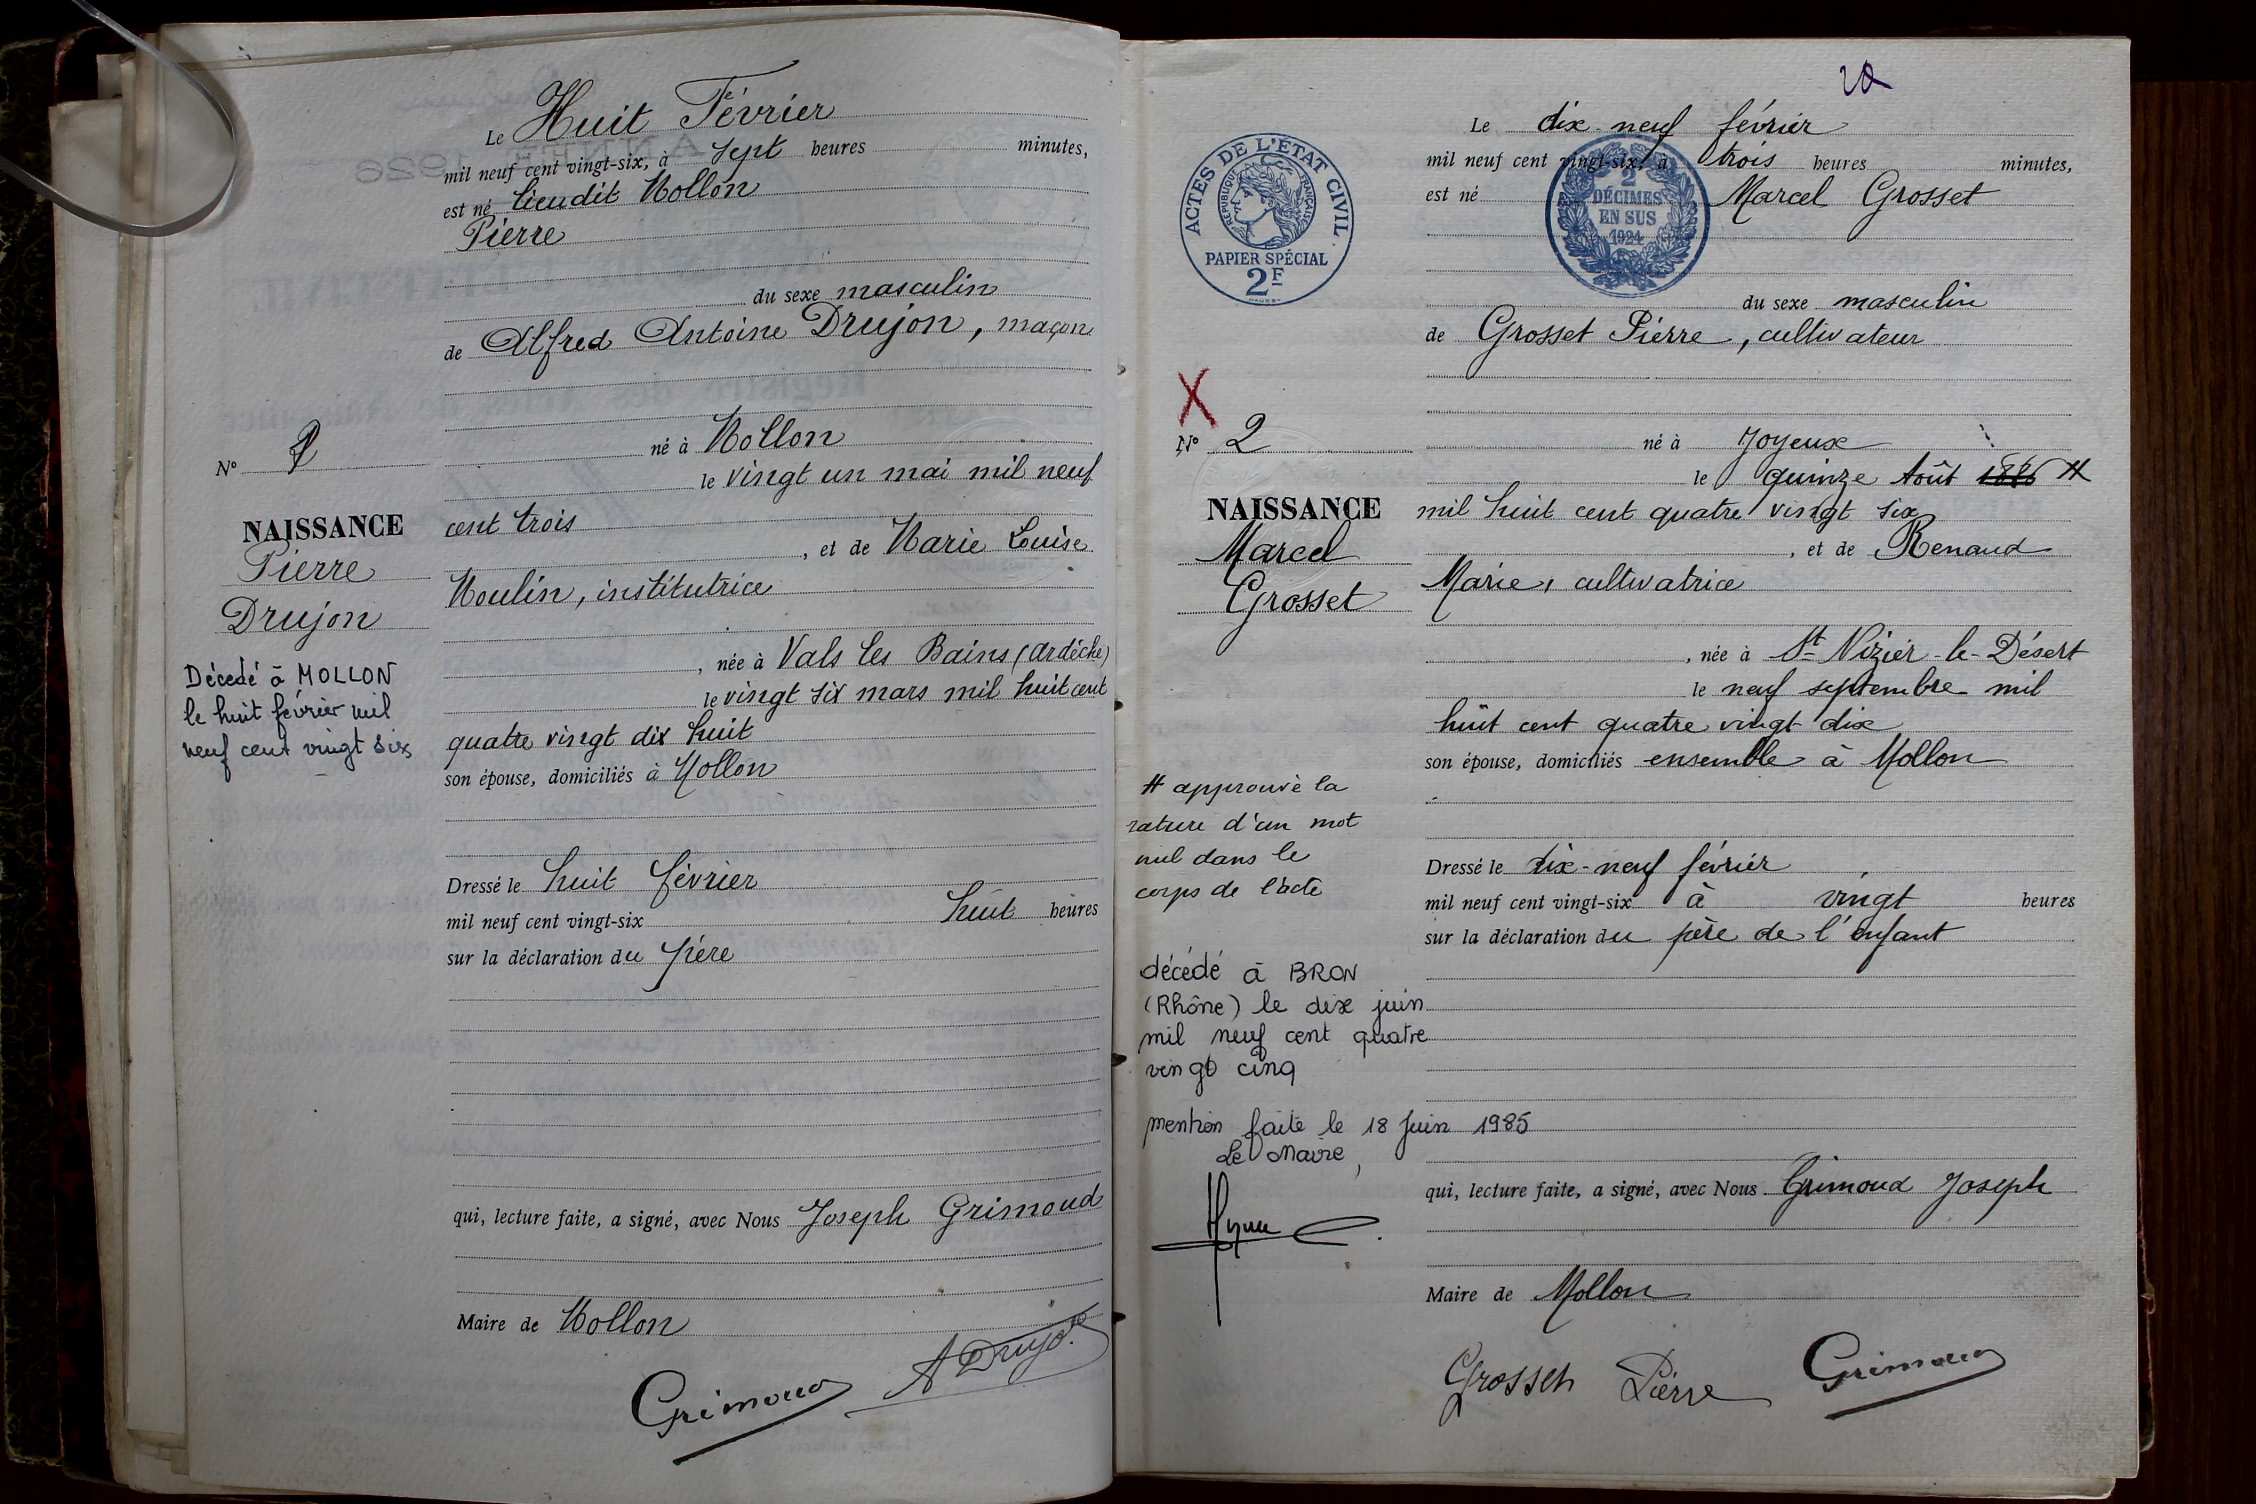 Le Huit Février
mil neuf cent vingt-six, à sept heures minutes,
est né lieudit Mollon
Pierre
du sexe masculin
de Alfred Antoine Drujon, maçon
né à Mollon
le vingt un mai mil neuf
cent trois
, et de Marie Louise
Moulin, institutrice
, née à Vals les Bains (Ardèche)
le vingt six mars mil huit cent
quatre vingt dix huit
son épouse, domiciliés à Mollon
Dressé le huit février
mil neuf cent vingt-six huit heures
sur la déclaration du père
qui, lecture faite, a signé, avec Nous Joseph Grimoud
Maire de Mollon
Grimoud A Drujon
N° 1
NAISSANCE
Pierre
Drujon
Décédé à MOLLON
le huit février mil
neuf cent vingt six
Le dix-neuf février
mil neuf cent vingt-six, à trois heures minutes,
est né Marcel Grosset
du sexe masculin
de Grosset Pierre, cultivateur
né à Joyeux
le quinze Août 1886 #
mil huit cent quatre vingt six
, et de Renaud
Marie, cultivatrice
, née à St Nizier-le-Désert
le neuf septembre mil
huit cent quatre vingt dix
son épouse, domiciliés ensemble à Mollon
Dressé le dix-neuf février
mil neuf cent vingt-six à vingt heures
sur la déclaration du père de l'enfant
qui, lecture faite, a signé, avec Nous Grimoud Joseph
Maire de Mollon
Grosset Pierre Grimoud
ACTES DE L'ÉTAT CIVIL.
RÉPUBLIQUE FRANÇAISE
PAPIER SPÉCIAL
2F
2
DÉCIMES
EN SUS
1924
X
N° 2
NAISSANCE
Marcel
Grosset
# approuvé la
rature d'un mot
nul dans le
corps de l'acte
décédé à BRON
(Rhône) le dix juin
mil neuf cent quatre
vingt cinq
mention faite le 18 Juin 1985
Le Maire,